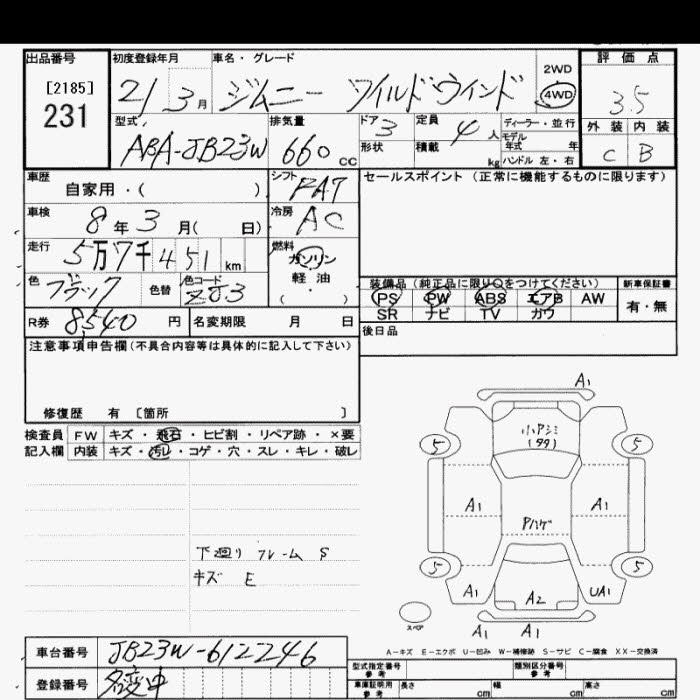 出品番号 初度登録年月 車名・グレード 評価点
[2185] 231 21 3月 ジムニー ワイルドウインド 2WD 4WD 3.5
型式 排気量 ドア 3 定員 4人 ディーラー・並行 外装 内装
ABA-JB23W 660cc 形状 積載 kg モデル年式 年 ハンドル 左・右 C B
車歴 自家用・( ) シフト FAT セールスポイント (正常に機能するものに限ります)
車検 8年3月( 日) 冷房 AC
走行 5万7千451km 燃料 ガソリン 軽油 ・ ( )
色 ブラック 色替 色コード ZJ3 装備品 (純正品に限り○をつけてください) 新車保証書
PS PW ABS エアB AW 有・無
R券 8,540円 名変期限 月 日 SR ナビ TV カワ
後日品
注意事項申告欄(不具合内容等は具体的に記入して下さい)
修復歴 有 [箇所 ]
検査員 FW キズ・飛石・ヒビ割・リペア跡・×要
記入欄 内装 キズ・汚レ・コゲ・穴・スレ・キレ・破レ
A1
小アシミ
(タタ)
5 5
A1 A1
Pハゲ
5 5
A1 A2 UA1
スペア A1 A1
下廻り フレーム S
キズ E
A-キズ E-エクボ U-凹み W-補修跡 S-サビ C-腐食 XX-交換済
車台番号 JB23W-612246
型式指定番号 参考 類別区分番号 参考
登録番号 名変中
車庫証明用 参考 長さ cm 幅 cm 高さ cm